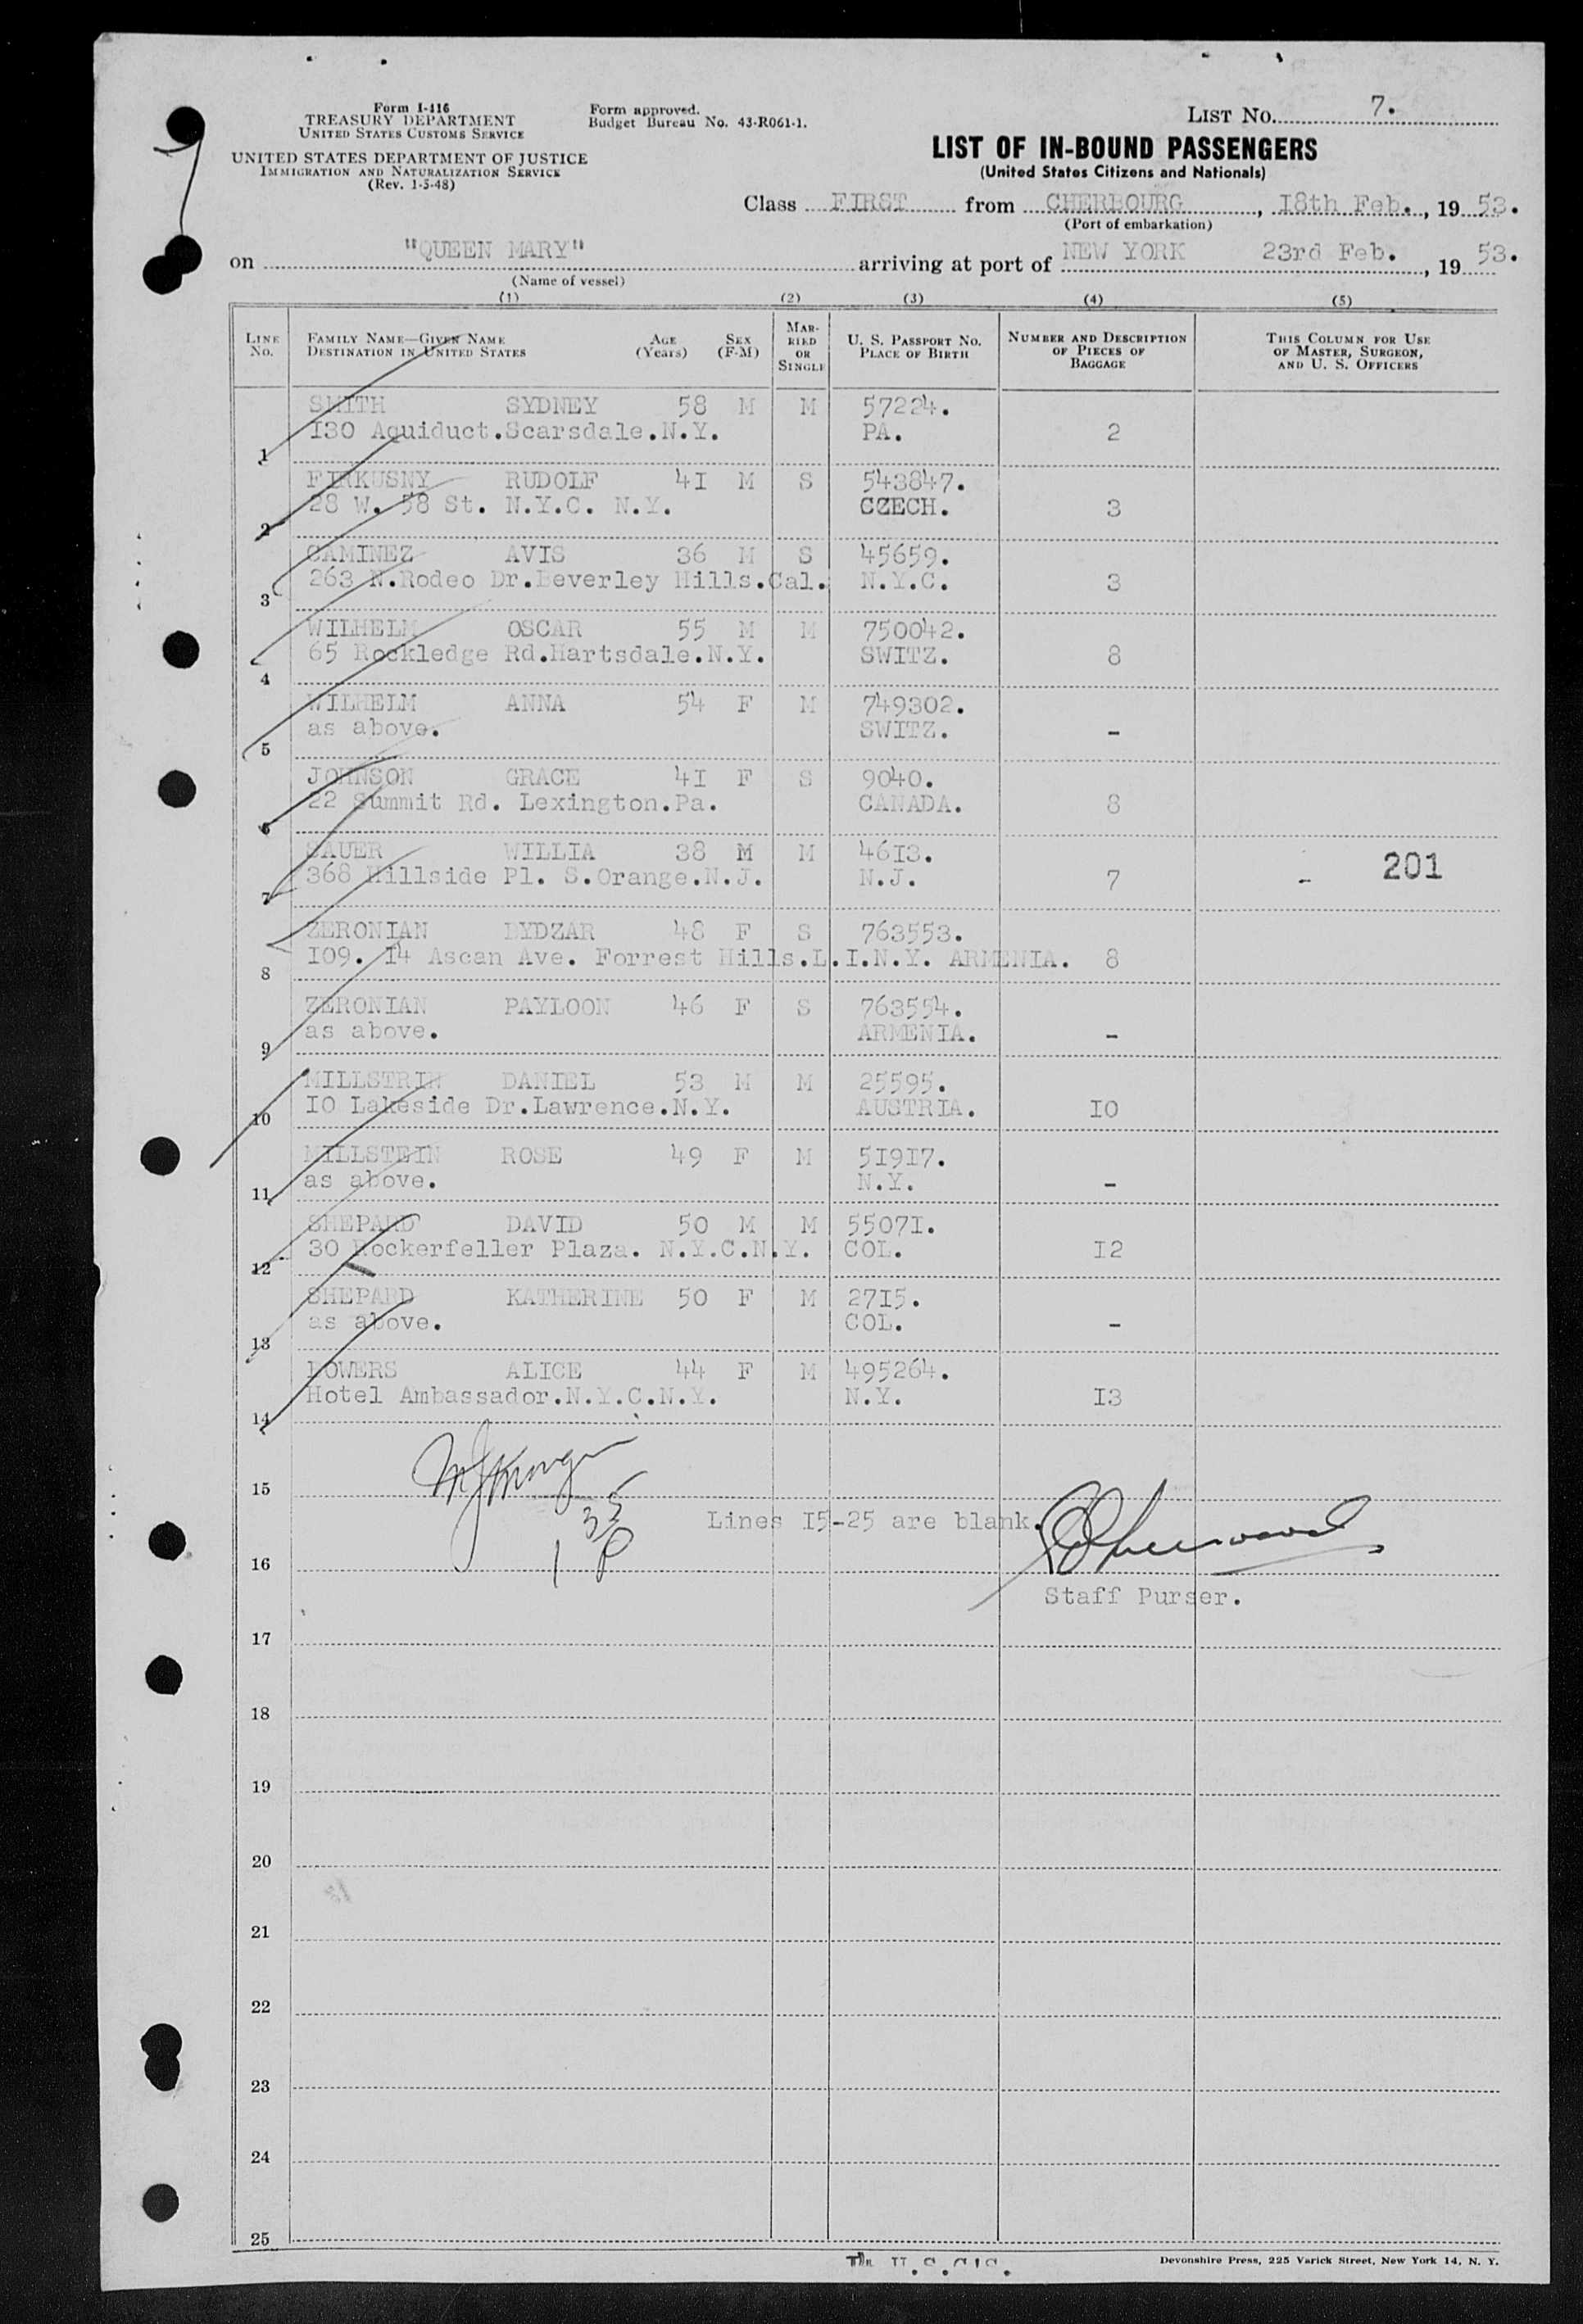 Form I-416
TREASURY DEPARTMENT
UNITED STATES CUSTOMS SERVICE
UNITED STATES DEPARTMENT OF JUSTICE
IMMIGRATION AND NATURALIZATION SERVICE
(Rev. 1-5-48)
Form approved.
Budget Bureau No. 43-R061-1.
LIST No. 7.
LIST OF IN-BOUND PASSENGERS
(United States Citizens and Nationals)
Class FIRST from CHERBOURG, 18th Feb., 19 53.
(Port of embarkation)
on "QUEEN MARY" arriving at port of NEW YORK 23rd Feb., 19 53.
(Name of vessel)
(1) (2) (3) (4) (5)
LINE No. FAMILY NAME—GIVEN NAME DESTINATION IN UNITED STATES AGE (Years) SEX (F-M) MARRIED OR SINGLE U. S. PASSPORT NO. PLACE OF BIRTH NUMBER AND DESCRIPTION OF PIECES OF BAGGAGE THIS COLUMN FOR USE OF MASTER, SURGEON, AND U. S. OFFICERS
SMITH SYDNEY 58 M M 57224.
1 130 Aquiduct.Scarsdale.N.Y. PA. 2
FIRKUSNY RUDOLF 41 M S 543847.
2 28 W. 58 St. N.Y.C. N.Y. CZECH. 3
CAMINEZ AVIS 36 M S 45659.
3 263 N.Rodeo Dr.Beverley Hills.Cal. N.Y.C. 3
WILHELM OSCAR 55 M M 750042.
4 65 Rockledge Rd.Hartsdale.N.Y. SWITZ. 8
WILHELM ANNA 54 F M 749302.
5 as above. SWITZ. -
JOHNSON GRACE 41 F S 9040.
6 22 Summit Rd. Lexington.Pa. CANADA. 8
SAUER WILLIA 38 M M 4613.
7 368 Hillside Pl. S.Orange.N.J. N.J. 7 - 201
ZERONIAN DYDZAR 48 F S 763553.
8 109. 14 Ascan Ave. Forrest Hills.L.I.N.Y. ARMENIA. 8
ZERONIAN PAYLOON 46 F S 763554.
9 as above. ARMENIA. -
MILLSTRIN DANIEL 53 M M 25595.
10 10 Lakeside Dr.Lawrence.N.Y. AUSTRIA. 10
MILLSTEIN ROSE 49 F M 51917.
11 as above. N.Y. -
SHEPARD DAVID 50 M M 55071.
12 30 Rockerfeller Plaza. N.Y.C.N.Y. COL. 12
SHEPARD KATHERINE 50 F M 2715.
13 as above. COL. -
POWERS ALICE 44 F M 495264.
14 Hotel Ambassador.N.Y.C.N.Y. N.Y. 13
15
Lines 15-25 are blank.
16
Staff Purser.
17
18
19
20
21
22
23
24
25
Devonshire Press, 225 Varick Street, New York 14, N. Y.